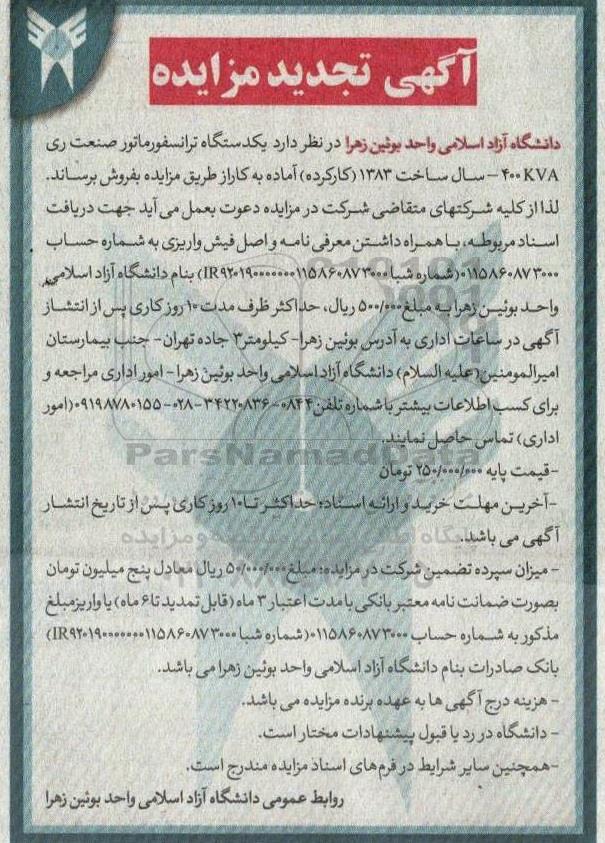 آگهی تجدید مزایده
دانشگاه آزاد اسلامی واحد بوئین زهرا در نظر دارد یکدستگاه ترانسفورماتور صنعت ری
۴۰۰ KVA – سال ساخت ۱۳۸۳ (کارکرده) آماده به کار از طریق مزایده بفروش برساند.
لذا از کلیه شرکتهای متقاضی شرکت در مزایده دعوت بعمل می آید جهت دریافت
اسناد مربوطه، با همراه داشتن معرفی نامه و اصل فیش واریزی به شماره حساب
۰۱۱۵۸۶۰۸۷۳۰۰۰ (شماره شبا IR۹۲۰۱۹۰۰۰۰۰۰۰۱۱۵۸۶۰۸۷۳۰۰۰) بنام دانشگاه آزاد اسلامی
واحد بوئین زهرا به مبلغ ۵۰۰/۰۰۰ ریال، حداکثر ظرف مدت ۱۰ روز کاری پس از انتشار
آگهی در ساعات اداری به آدرس بوئین زهرا- کیلومتر۳ جاده تهران- جنب بیمارستان
امیرالمومنین (علیه السلام) دانشگاه آزاد اسلامی واحد بوئین زهرا - امور اداری مراجعه و
برای کسب اطلاعات بیشتر با شماره تلفن ۰۸۴۴-۳۴۲۲۰۸۳۶-۰۲۸-۰۹۱۹۸۷۸۰۱۵۵ (امور
اداری) تماس حاصل نمایند.
ParsNamadData
-قیمت پایه ۲۵۰/۰۰۰/۰۰۰ تومان
-آخرین مهلت خرید و ارائه اسناد: حداکثر تا ۱۰ روز کاری پس از تاریخ انتشار
آگهی می باشد.
- میزان سپرده تضمین شرکت در مزایده: مبلغ ۵۰/۰۰۰/۰۰۰ ریال معادل پنج میلیون تومان
بصورت ضمانت نامه معتبر بانکی با مدت اعتبار ۳ ماه (قابل تمدید تا ۶ ماه) یا واریز مبلغ
مذکور به شماره حساب ۰۱۱۵۸۶۰۸۷۳۰۰۰ (شماره شبا IR۹۲۰۱۹۰۰۰۰۰۰۰۱۱۵۸۶۰۸۷۳۰۰۰)
بانک صادرات بنام دانشگاه آزاد اسلامی واحد بوئین زهرا می باشد.
- هزینه درج آگهی ها به عهده برنده مزایده می باشد.
- دانشگاه در رد یا قبول پیشنهادات مختار است.
-همچنین سایر شرایط در فرم های اسناد مزایده مندرج است.
روابط عمومی دانشگاه آزاد اسلامی واحد بوئین زهرا